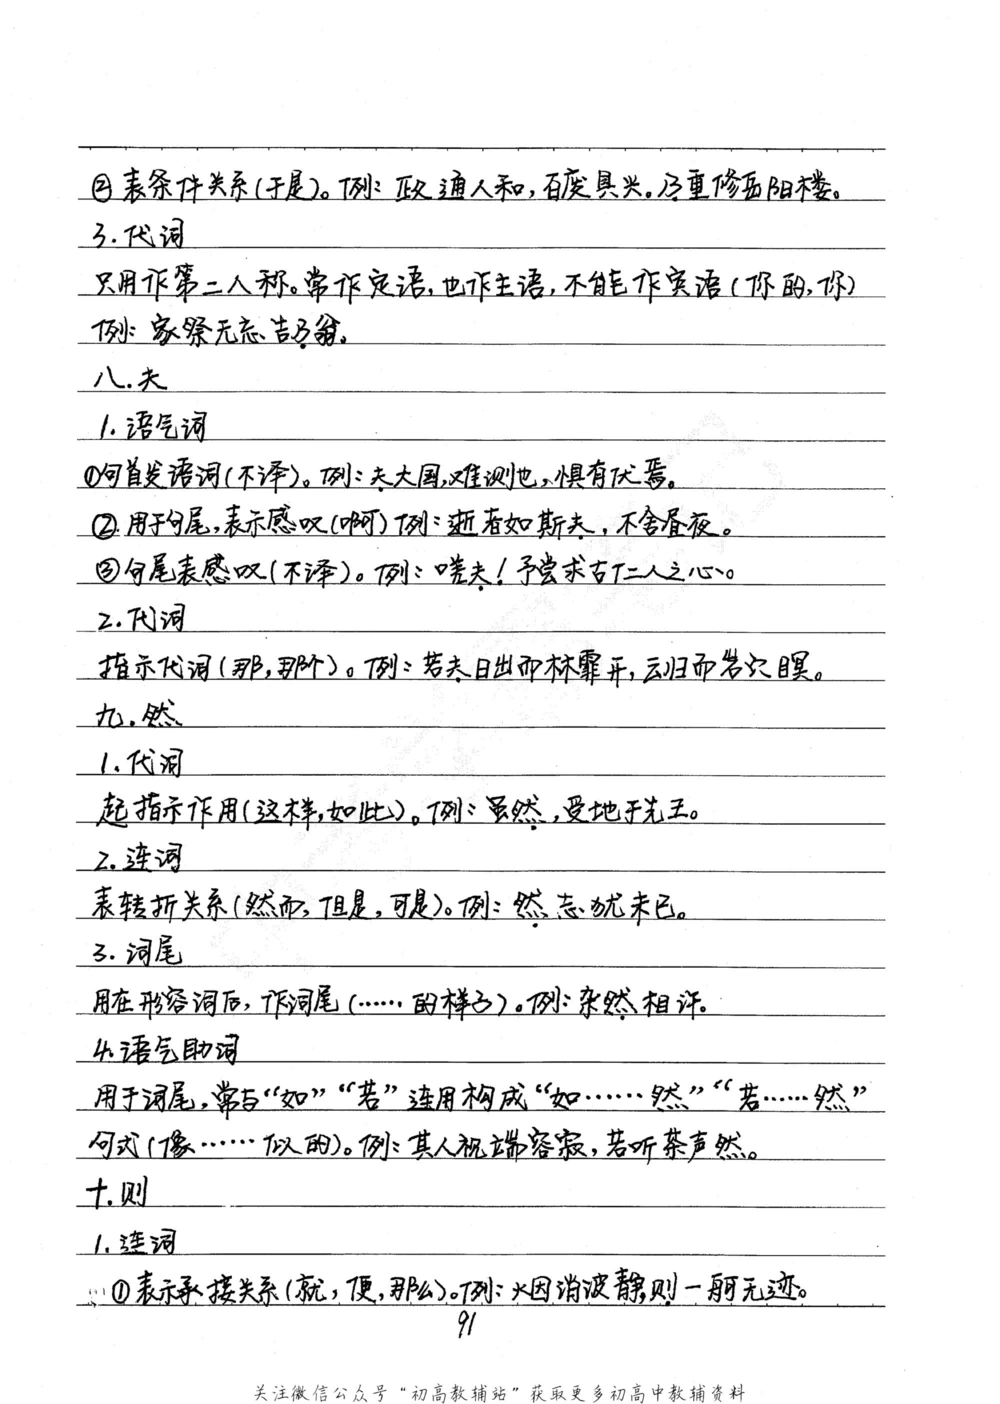 ②表条件关系(于是)。例:政通人和,百废具兴。乃重修岳阳楼。
3.代词
只用作第二人称。常作定语,也作主语,不能作宾语(你的,你)
例:家祭无忘告乃翁。
八.夫
1.语气词
①句首发语词(不译)。例:夫大国,难测也,惧有伏焉。
②用于句尾,表示感叹(啊)例:逝者如斯夫,不舍昼夜。
③句尾表感叹(不译)。例:嗟夫!予尝求古仁人之心。
2.代词
指示代词(那,那个)。例:若夫日出而林霏开,云归而岩穴暝。
九.然
1.代词
起指示作用(这样,如此)。例:虽然,受地于先王。
2.连词
表转折关系(然而,但是,可是)。例:然志犹未已。
3.词尾
用在形容词后,作词尾(……的样子)。例:杂然相许。
4.语气助词
用于词尾,常与“如”“若”连用构成“如……然”“若……然”
句式(像……似的)。例:其人视端容寂,若听茶声然。
十.则
1.连词
①表示承接关系(就,便,那么)。例:火因消波静,则一舸无迹。
91
关注微信公众号“初高教辅站”获取更多初高中教辅资料